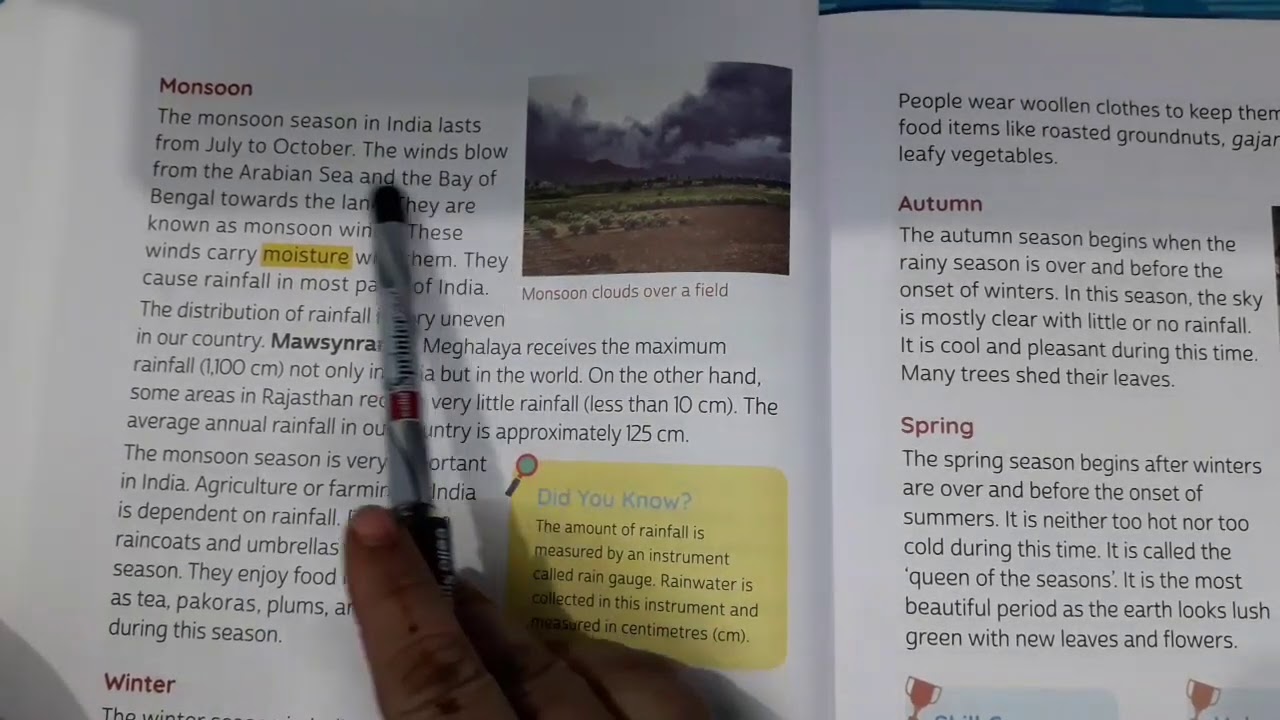 Monsoon
The monsoon season in India lasts
from July to October. The winds blow
from the Arabian Sea and the Bay of
Bengal towards the They are
known as monsoon These
winds carry moisture them. They
cause rainfall in most of India.
Monsoon clouds over a field
The distribution of rainfall uneven
in our country. Meghalaya receives the maximum
rainfall (1,100 cm) not only in but in the world. On the other hand,
some areas in Rajasthan very little rainfall (less than 10 cm). The
average annual rainfall in is approximately 125 cm.
The monsoon season is very
in India. Agriculture or India
is dependent on rainfall.
raincoats and umbrellas
season. They enjoy food
as tea, pakoras, plums,
during this season.
Did You Know?
The amount of rainfall is
measured by an instrument
called rain gauge. Rainwater is
collected in this instrument and
measured in centimetres (cm).
Winter
The
People wear woollen clothes to keep
food items like roasted groundnuts,
leafy vegetables.
Autumn
The autumn season begins when the
rainy season is over and before the
onset of winters. In this season, the sky
is mostly clear with little or no rainfall.
It is cool and pleasant during this time.
Many trees shed their leaves.
Spring
The spring season begins after winters
are over and before the onset of
summers. It is neither too hot nor too
cold during this time. It is called the
‘queen of the seasons’. It is the most
beautiful period as the earth looks lush
green with new leaves and flowers.